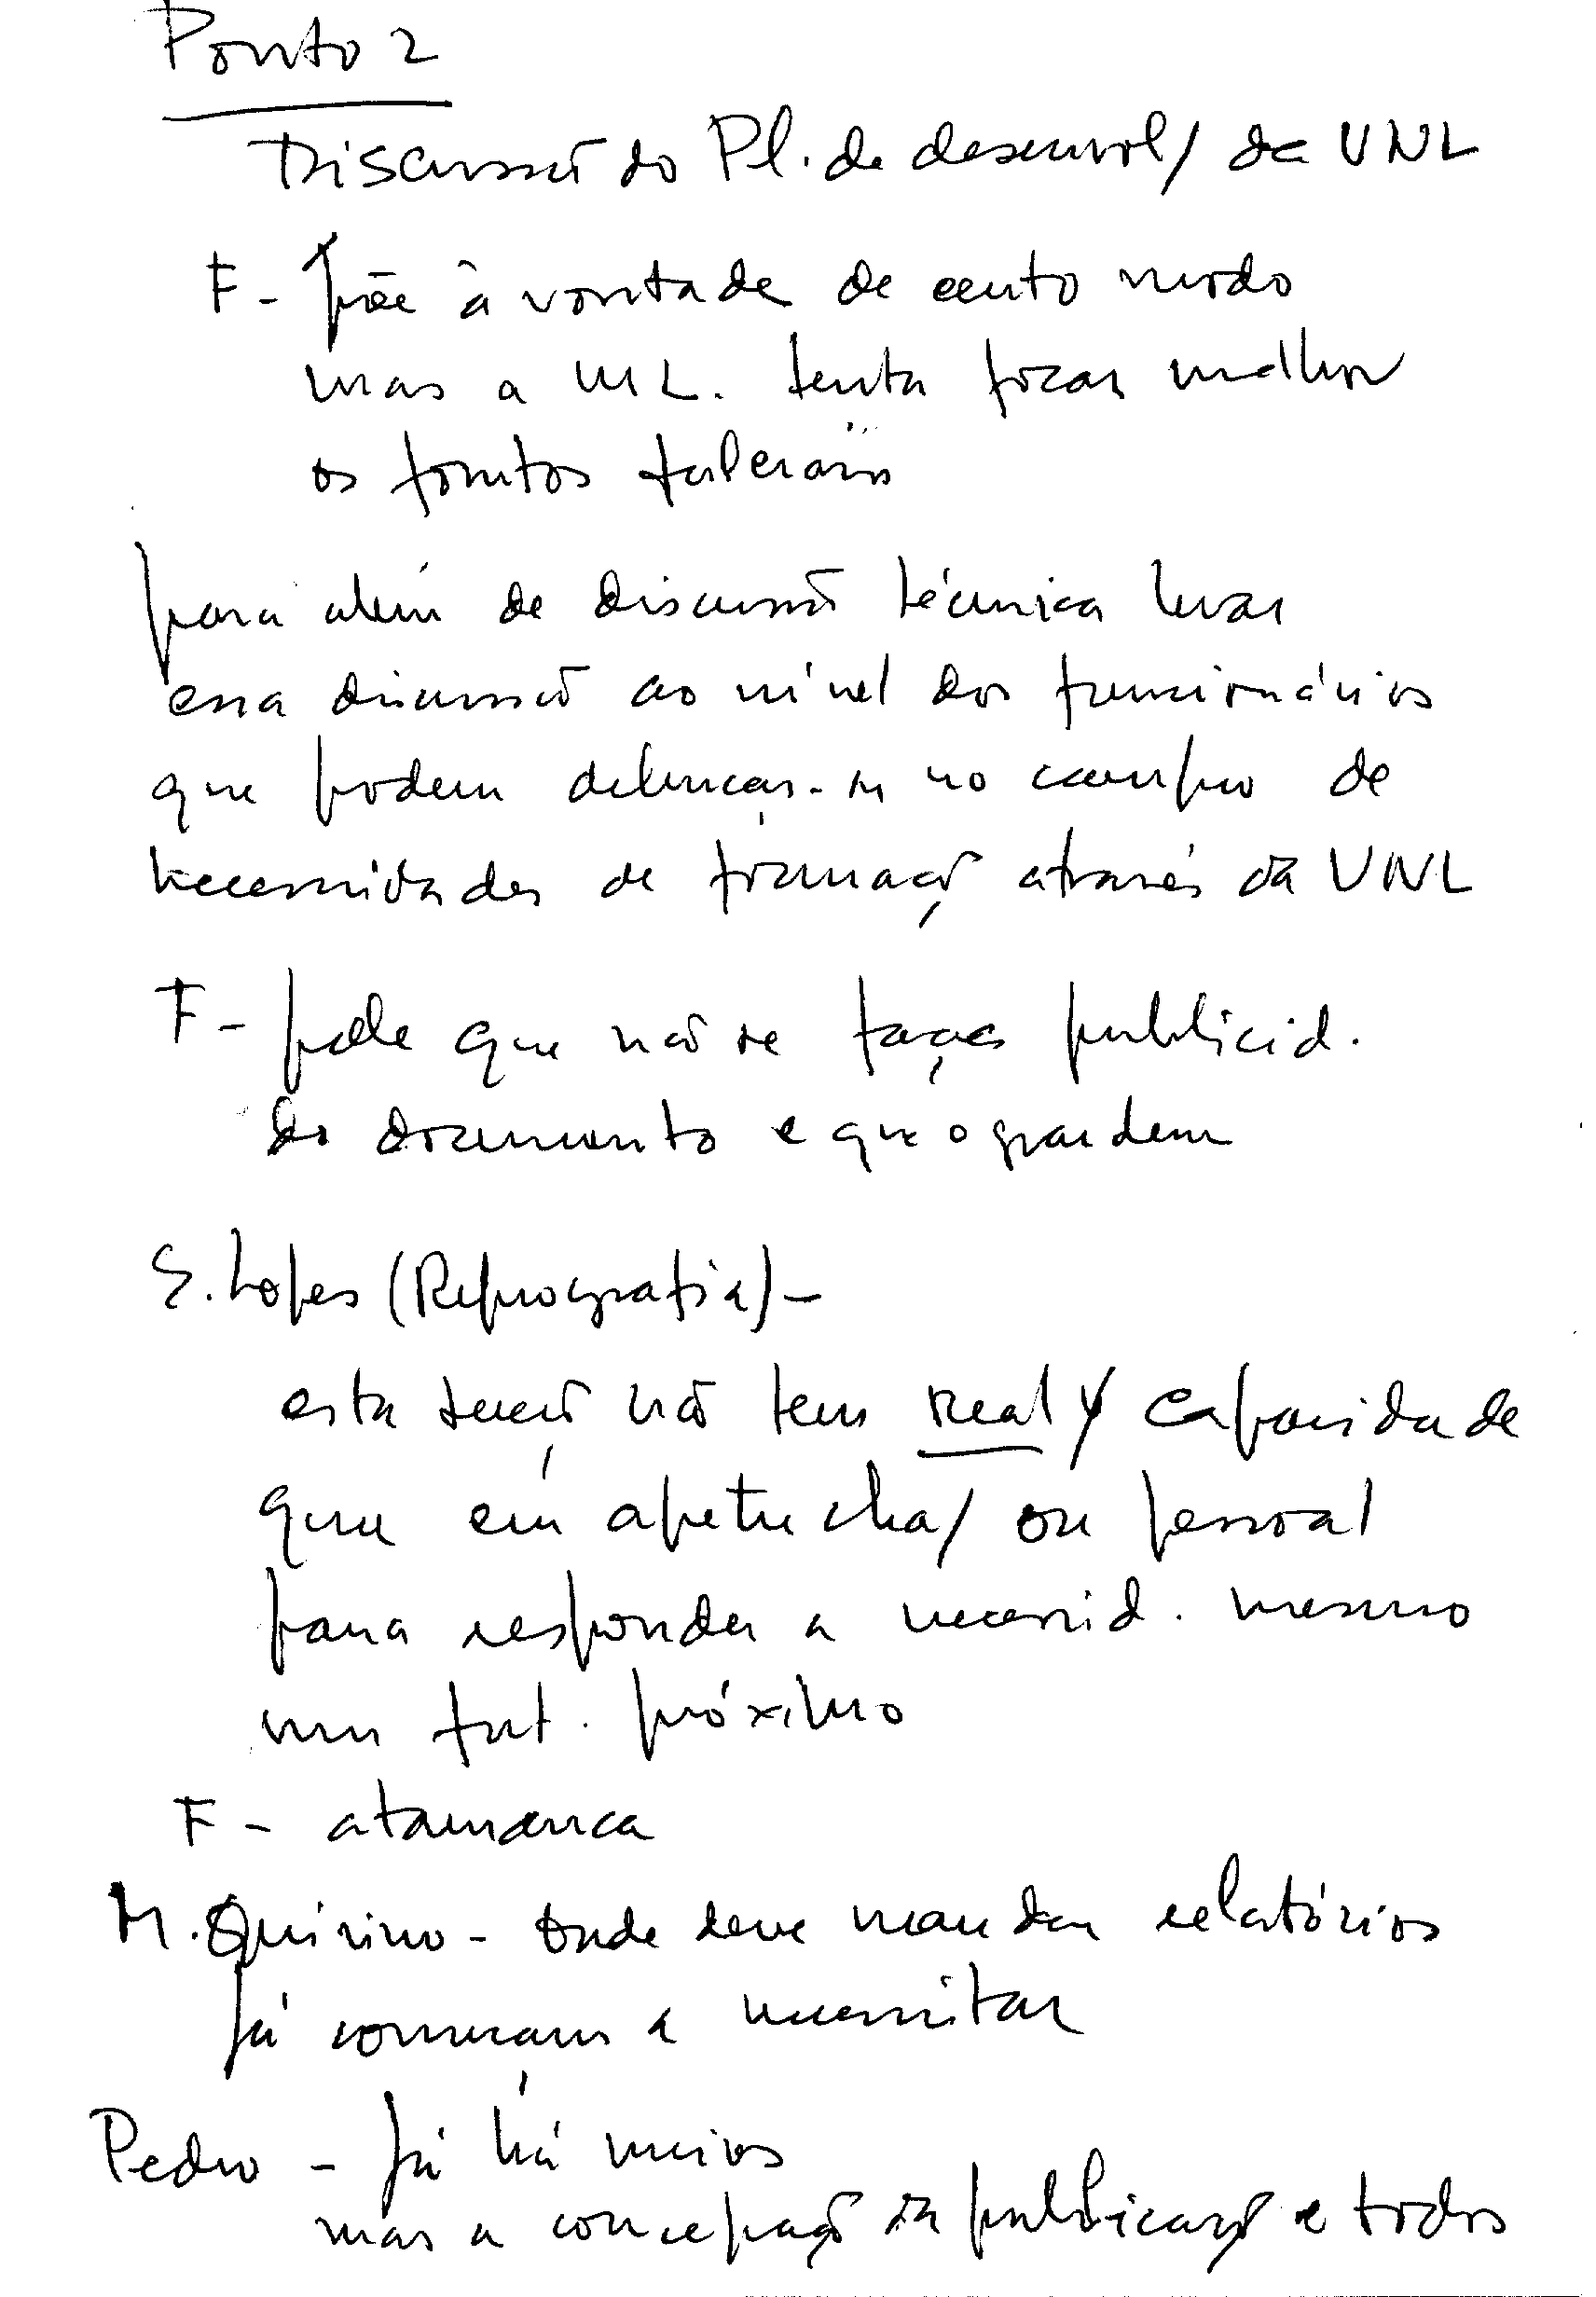 Ponto 2
Discussão do Pl. de desenvol/ da UNL
F - põe à vontade de certo modo
mas a ML. tenta focar melhor
os pontos fulcrais
para além de discussão técnica levar
essa discussão ao nível dos funcionários
que podem debruçar-se no campo de
necessidades de formação através da UNL
F - pede que não se faça publicid.
do documento e que o guardem
S. Lopes (Reprografia) -
esta secção não tem real/ capacidade
quer em apetrecha/ ou pessoal
para responder a necessid. mesmo
num fut. próximo
F - atamanca
M. Quirino - onde deve mandar relatórios
já começam a necessitar
Pedro - já há meios
mas a concepção da publicação e todos